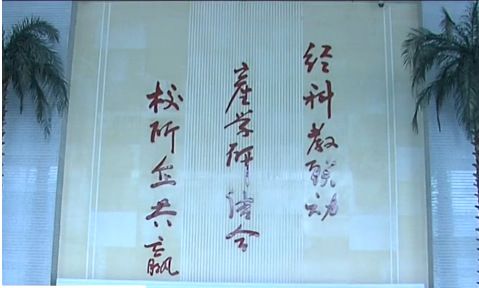 经科教联动
產学研结合
校所企共赢